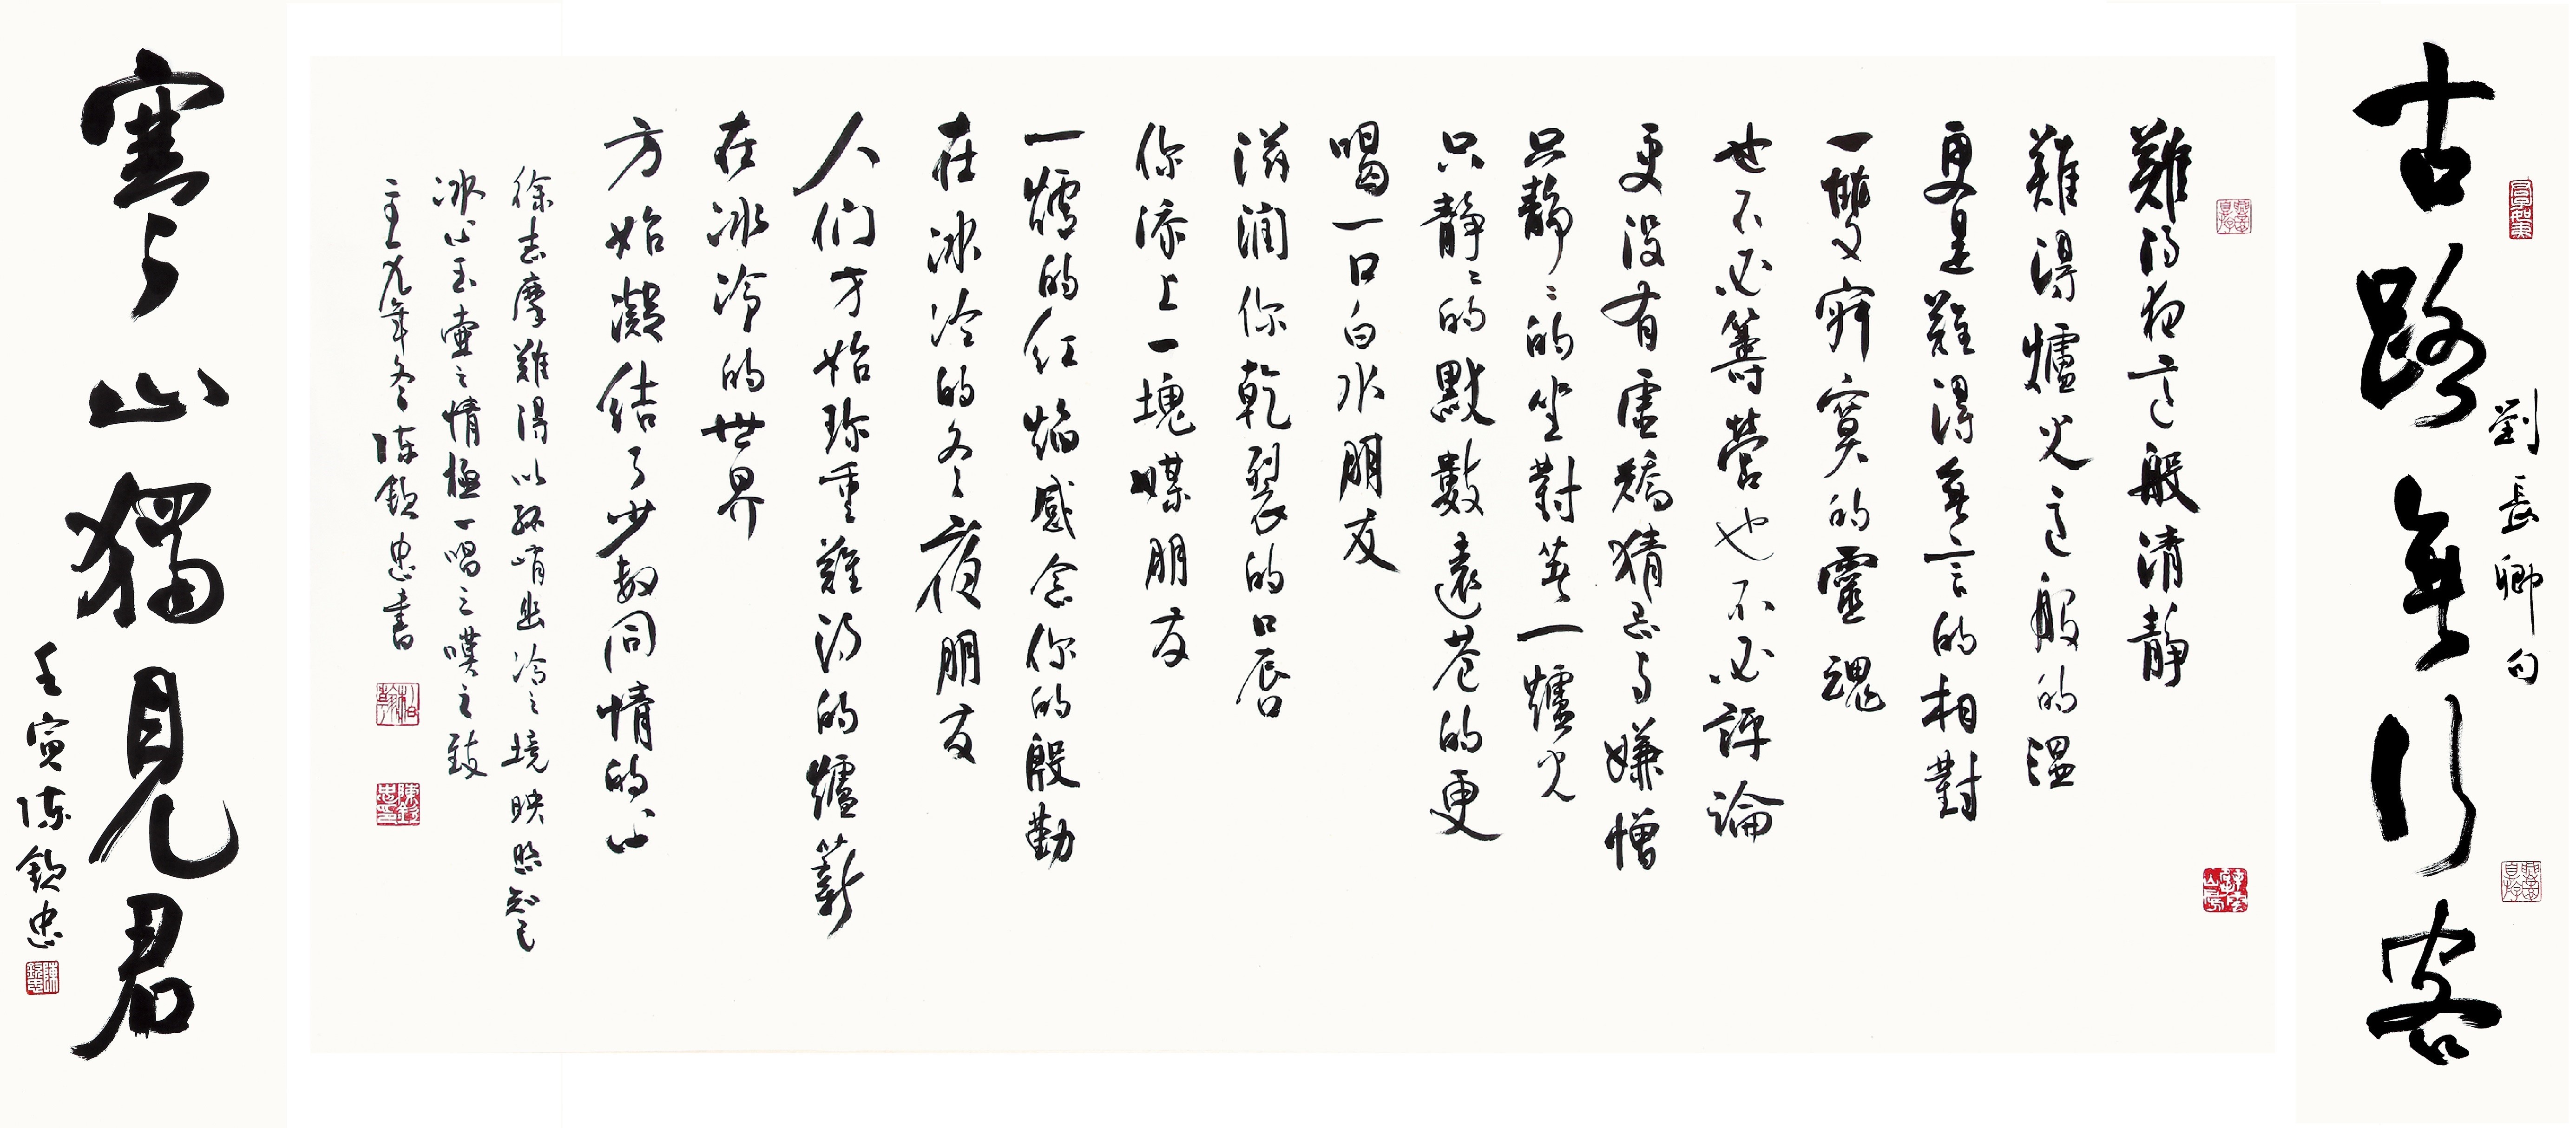 古路無行客
劉長卿句
難得夜這般清靜
難得爐火這般的溫
更是難得無言的相對
一雙寂寞的靈魂
也不必籌營也不必評論
更沒有虛驕猜忌與嫌憎
只靜々的坐對著一爐火
只靜々的默數遠巷的更
喝一口白水朋友
滋潤你乾裂的口唇
你添上一塊煤朋友
一爐的紅焰感念你的殷勤
在冰冷的冬夜朋友
人們才始珍重難得的爐薪
在冰冷的世界
方始凝結了少數同情的心
徐志摩難得以孤峭幽冷之境映照知己
冰心玉壺之情極一唱三嘆之致
二〇一九年冬陳欽忠書
陳欽忠印
寒山獨見君
壬寅陳欽忠